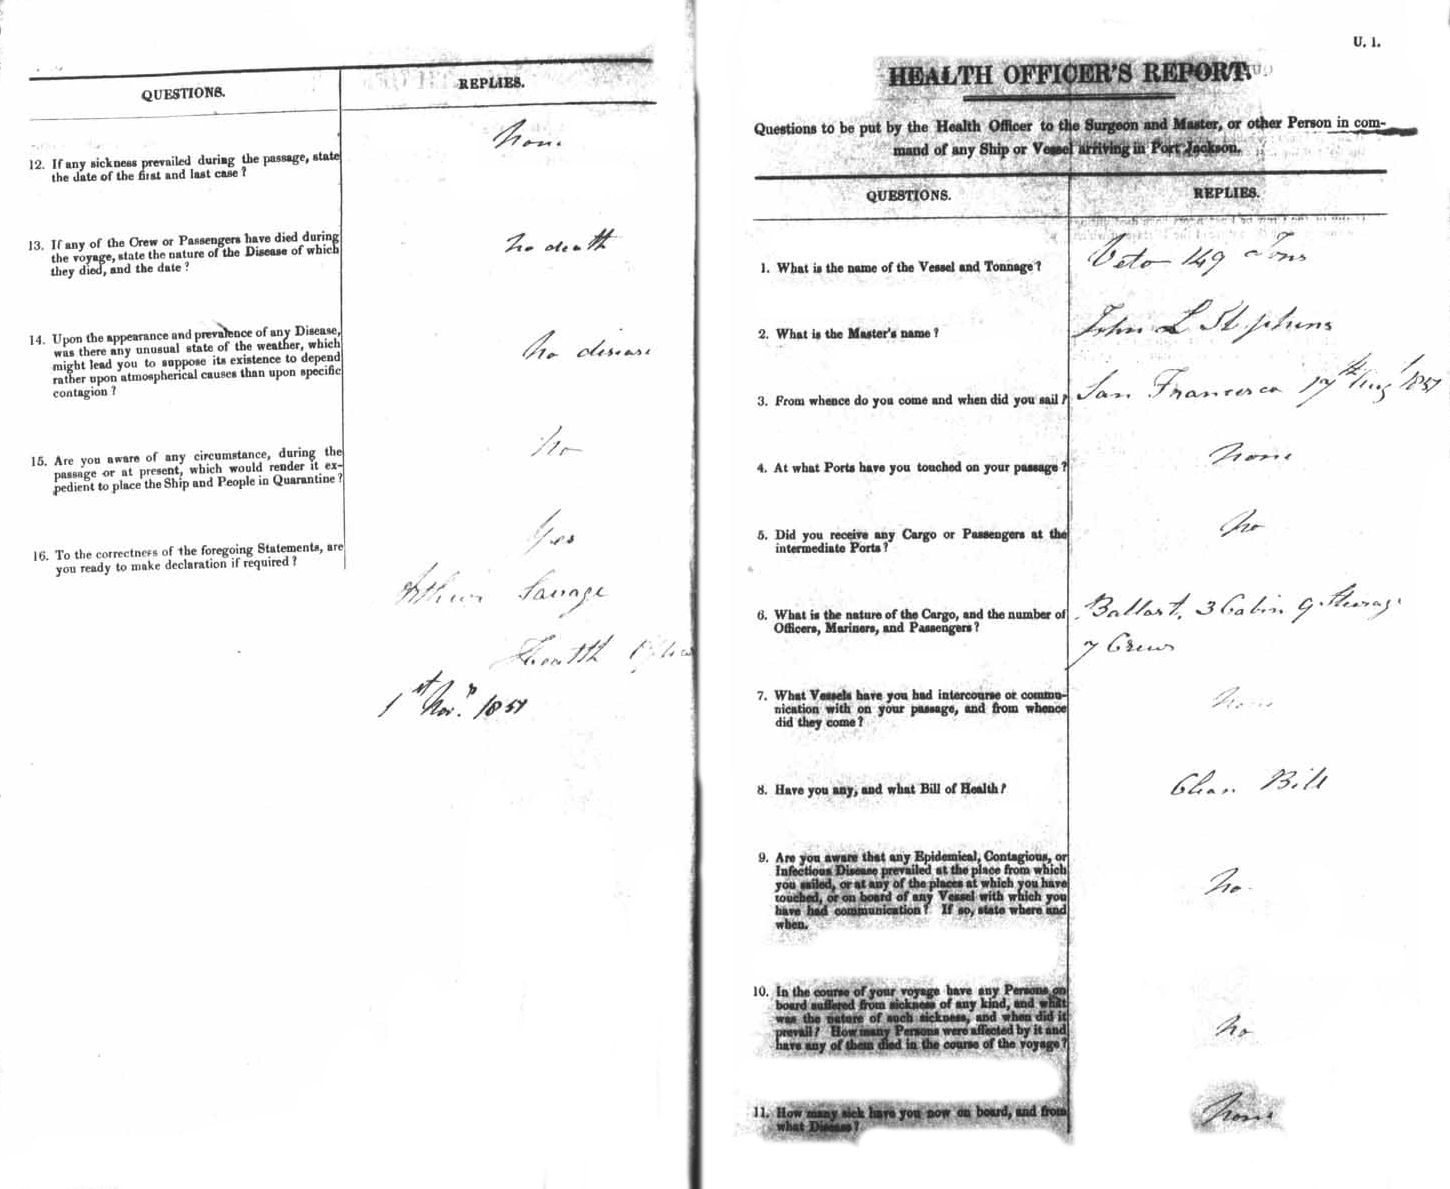 QUESTIONS.
REPLIES.
12. If any sickness prevailed during the passage, state
the date of the first and last case?
None
13. If any of the Crew or Passengers have died during
the voyage, state the nature of the Disease of which
they died, and the date?
No death
14. Upon the appearance and prevalence of any Disease,
was there any unusual state of the weather, which
might lead you to suppose its existence to depend
rather upon atmospherical causes than upon specific
contagion?
No disease
15. Are you aware of any circumstance, during the
passage or at present, which would render it ex-
pedient to place the Ship and People in Quarantine?
No
16. To the correctness of the foregoing Statements, are
you ready to make declaration if required?
Yes
Arthur Savage
Health Officer
1st Novr. 1851
U. 1.
HEALTH OFFICER'S REPORT.
Questions to be put by the Health Officer to the Surgeon and Master, or other Person in com-
mand of any Ship or Vessel arriving in Port Jackson.
QUESTIONS.
REPLIES.
1. What is the name of the Vessel and Tonnage?
Veto 149 Tons
2. What is the Master's name?
John L Stephens
3. From whence do you come and when did you sail?
San Francisco 17th Augt 1851
4. At what Ports have you touched on your passage?
None
5. Did you receive any Cargo or Passengers at the
intermediate Ports?
No
6. What is the nature of the Cargo, and the number of
Officers, Mariners, and Passengers?
Ballast, 3 Cabin 9 Steerage
7 Crew
7. What Vessels have you had intercourse or commu-
nication with on your passage, and from whence
did they come?
None
8. Have you any, and what Bill of Health?
Clean Bill
9. Are you aware that any Epidemical, Contagious, or
Infectious Disease prevailed at the place from which
you sailed, or at any of the places at which you have
touched, or on board of any Vessel with which you
have had communication? If so, state where and
when.
No
10. In the course of your voyage have any Persons on
board suffered from sickness of any kind, and what
was the nature of such sickness, and when did it
prevail? How many Persons were affected by it and
have any of them died in the course of the voyage?
No
11. How many sick have you now on board, and from
what Disease?
None